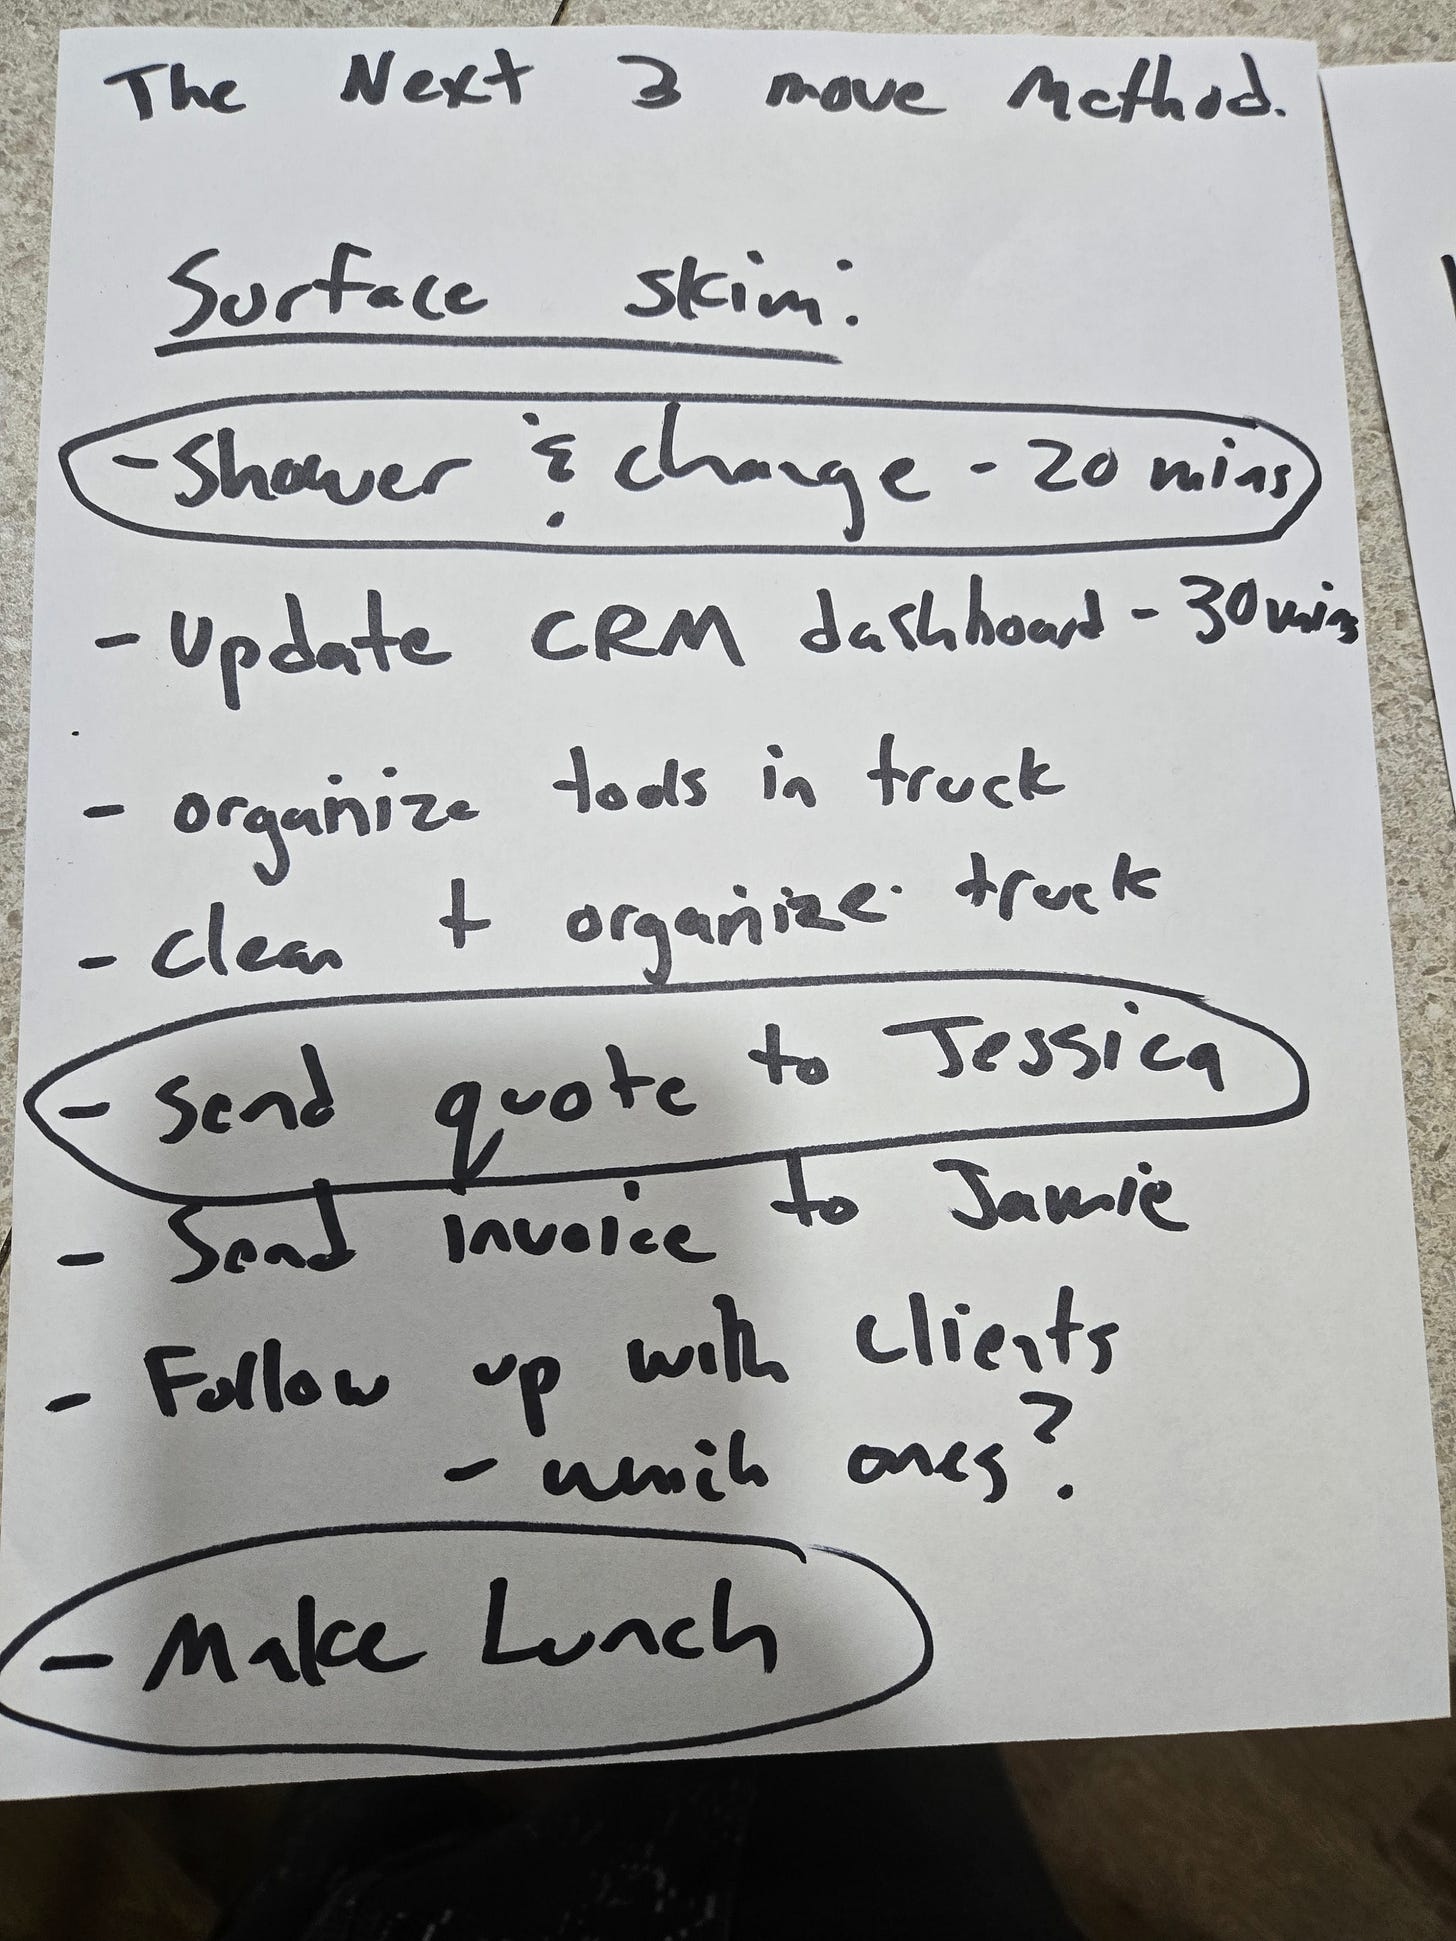 The Next 3 move Method.
Surface skim:
- Shower & change - 20 mins
- Update CRM dashboard - 30 mins
- organize tools in truck
- clean + organize truck
- Send quote to Jessica
- Send invoice to Jamie
- Follow up with clients
- which ones?
- Make Lunch